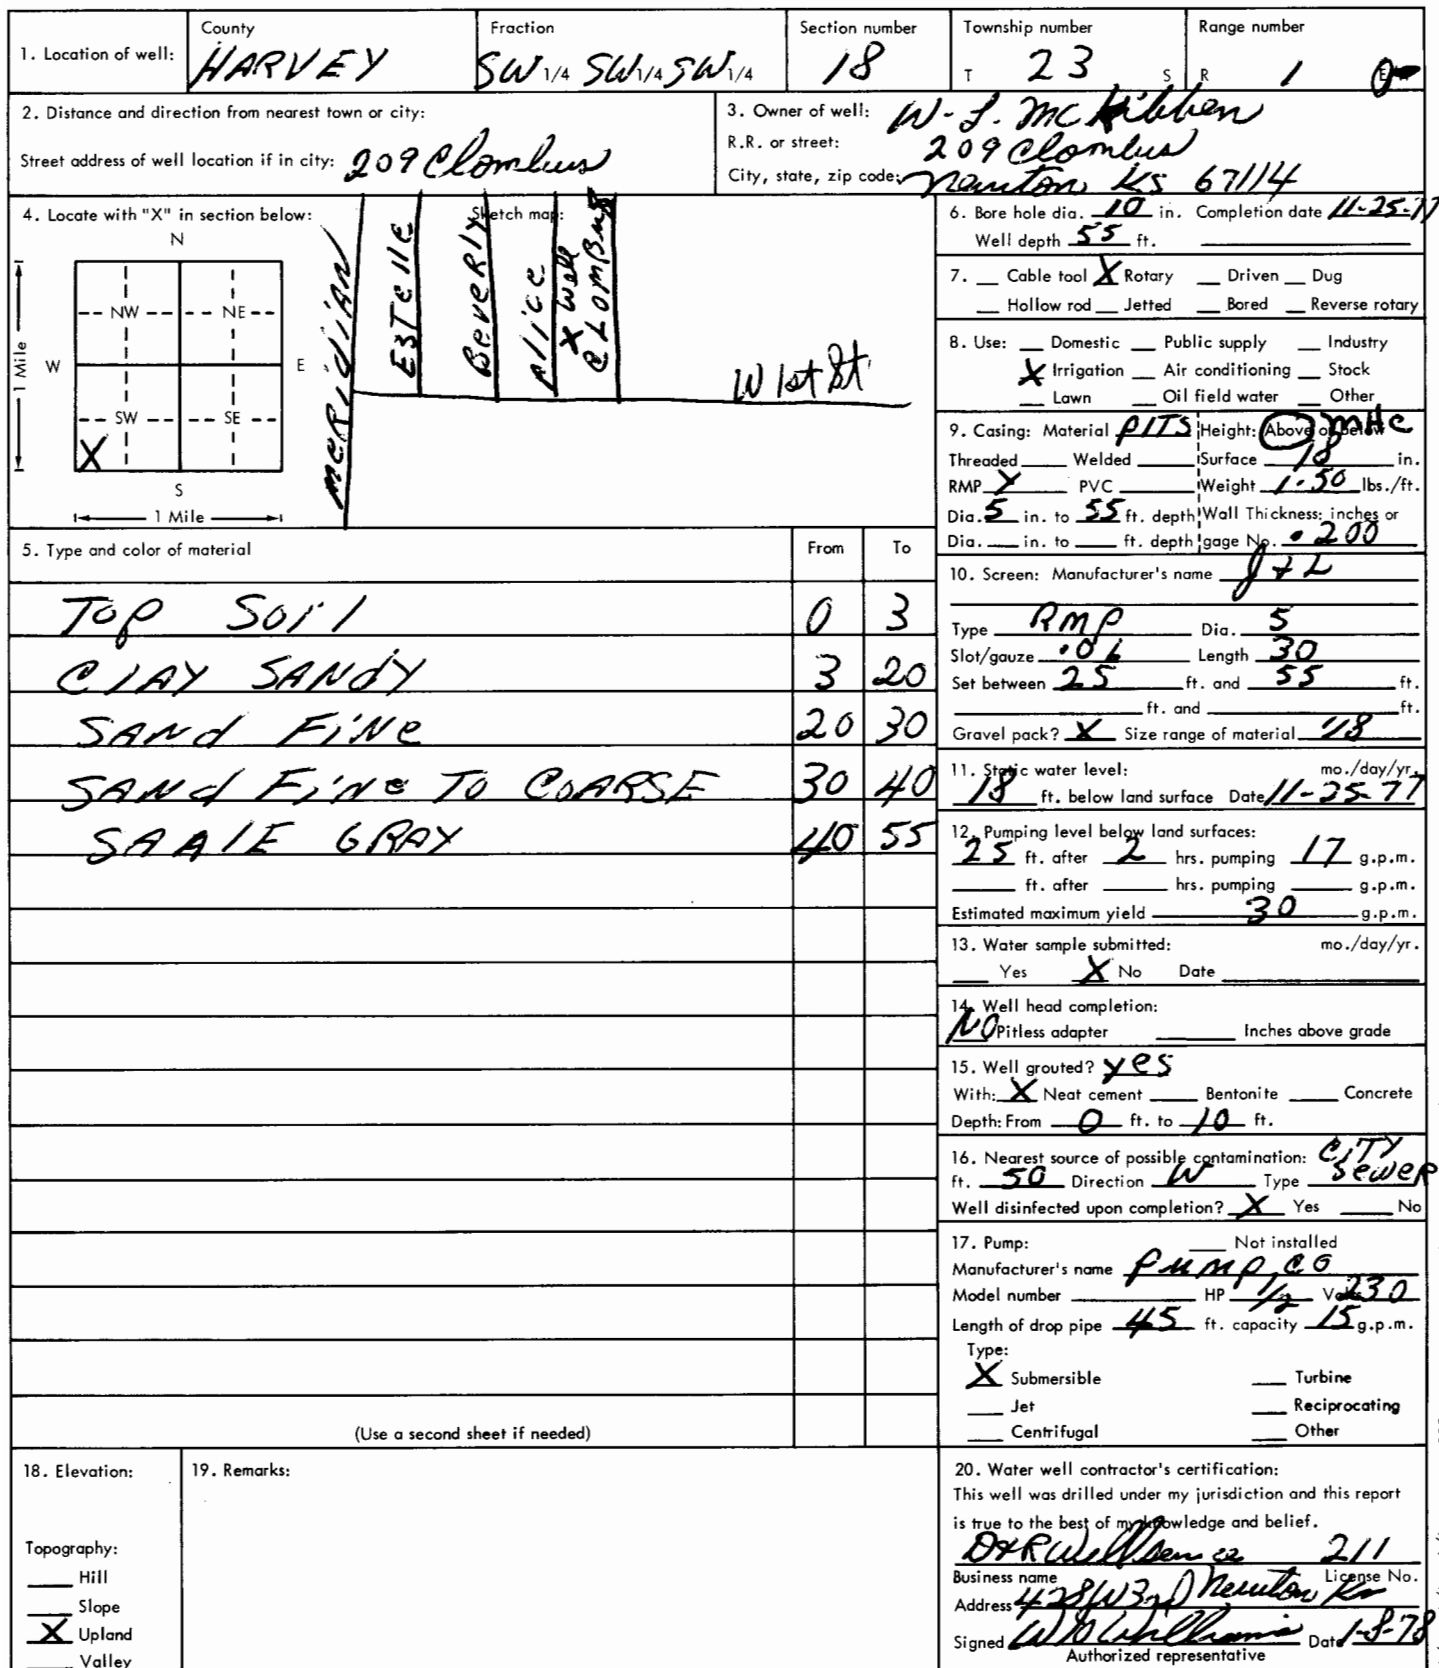 1. Location of well:
County
HARVEY
Fraction
SW 1/4 SW 1/4 SW 1/4
Section number
18
Township number
T 23 S
Range number
R 1 E
2. Distance and direction from nearest town or city:
Street address of well location if in city: 209 Clombus
3. Owner of well: W. L. McKibben
R.R. or street: 209 Clombus
City, state, zip code: Newton, Ks 67114
4. Locate with "X" in section below:
Sketch map:
N
NW NE
W E
SW SE
X
S
1 Mile
1 Mile
MERIDIAN
ESTELLE
BeveRly
Alice
X Well
CLOMBus
W 1st St
5. Type and color of material From To
Top Soil 0 3
CLAY SANdy 3 20
SANd FiNe 20 30
SANd FiNe To COARSE 30 40
SAALE GRAY 40 55
(Use a second sheet if needed)
6. Bore hole dia. 10 in. Completion date 11-25-77
Well depth 55 ft.
7. Cable tool X Rotary Driven Dug
Hollow rod Jetted Bored Reverse rotary
8. Use: Domestic Public supply Industry
X Irrigation Air conditioning Stock
Lawn Oil field water Other
9. Casing: Material PITS Height: Above or below MHC
Threaded Welded Surface 18 in.
RMP X PVC Weight 1.50 lbs./ft.
Dia. 5 in. to 55 ft. depth Wall Thickness: inches or
Dia. in. to ft. depth gage No. .200
10. Screen: Manufacturer's name J+L
Type RMP Dia. 5
Slot/gauze Length 30
Set between 25 ft. and 55 ft.
ft. and ft.
Gravel pack? X Size range of material 1/8
11. Static water level: mo./day/yr.
18 ft. below land surface Date 11-25-77
12. Pumping level below land surfaces:
25 ft. after 2 hrs. pumping 17 g.p.m.
ft. after hrs. pumping g.p.m.
Estimated maximum yield 30 g.p.m.
13. Water sample submitted: mo./day/yr.
Yes X No Date
14. Well head completion:
NO Pitless adapter Inches above grade
15. Well grouted? yes
With: X Neat cement Bentonite Concrete
Depth: From 0 ft. to 10 ft.
16. Nearest source of possible contamination: CiTY
ft. 50 Direction W Type SeweR
Well disinfected upon completion? X Yes No
17. Pump: Not installed
Manufacturer's name Pump, Co
Model number HP 1/2 Volts 230
Length of drop pipe 45 ft. capacity 15 g.p.m.
Type:
X Submersible Turbine
Jet Reciprocating
Centrifugal Other
18. Elevation:
Topography:
Hill
Slope
X Upland
Valley
19. Remarks:
20. Water well contractor's certification:
This well was drilled under my jurisdiction and this report
is true to the best of my knowledge and belief.
D&R Well Service 211
Business name License No.
Address 428 W 3rd Newton Ks
Signed W M Williams Date 1-8-78
Authorized representative